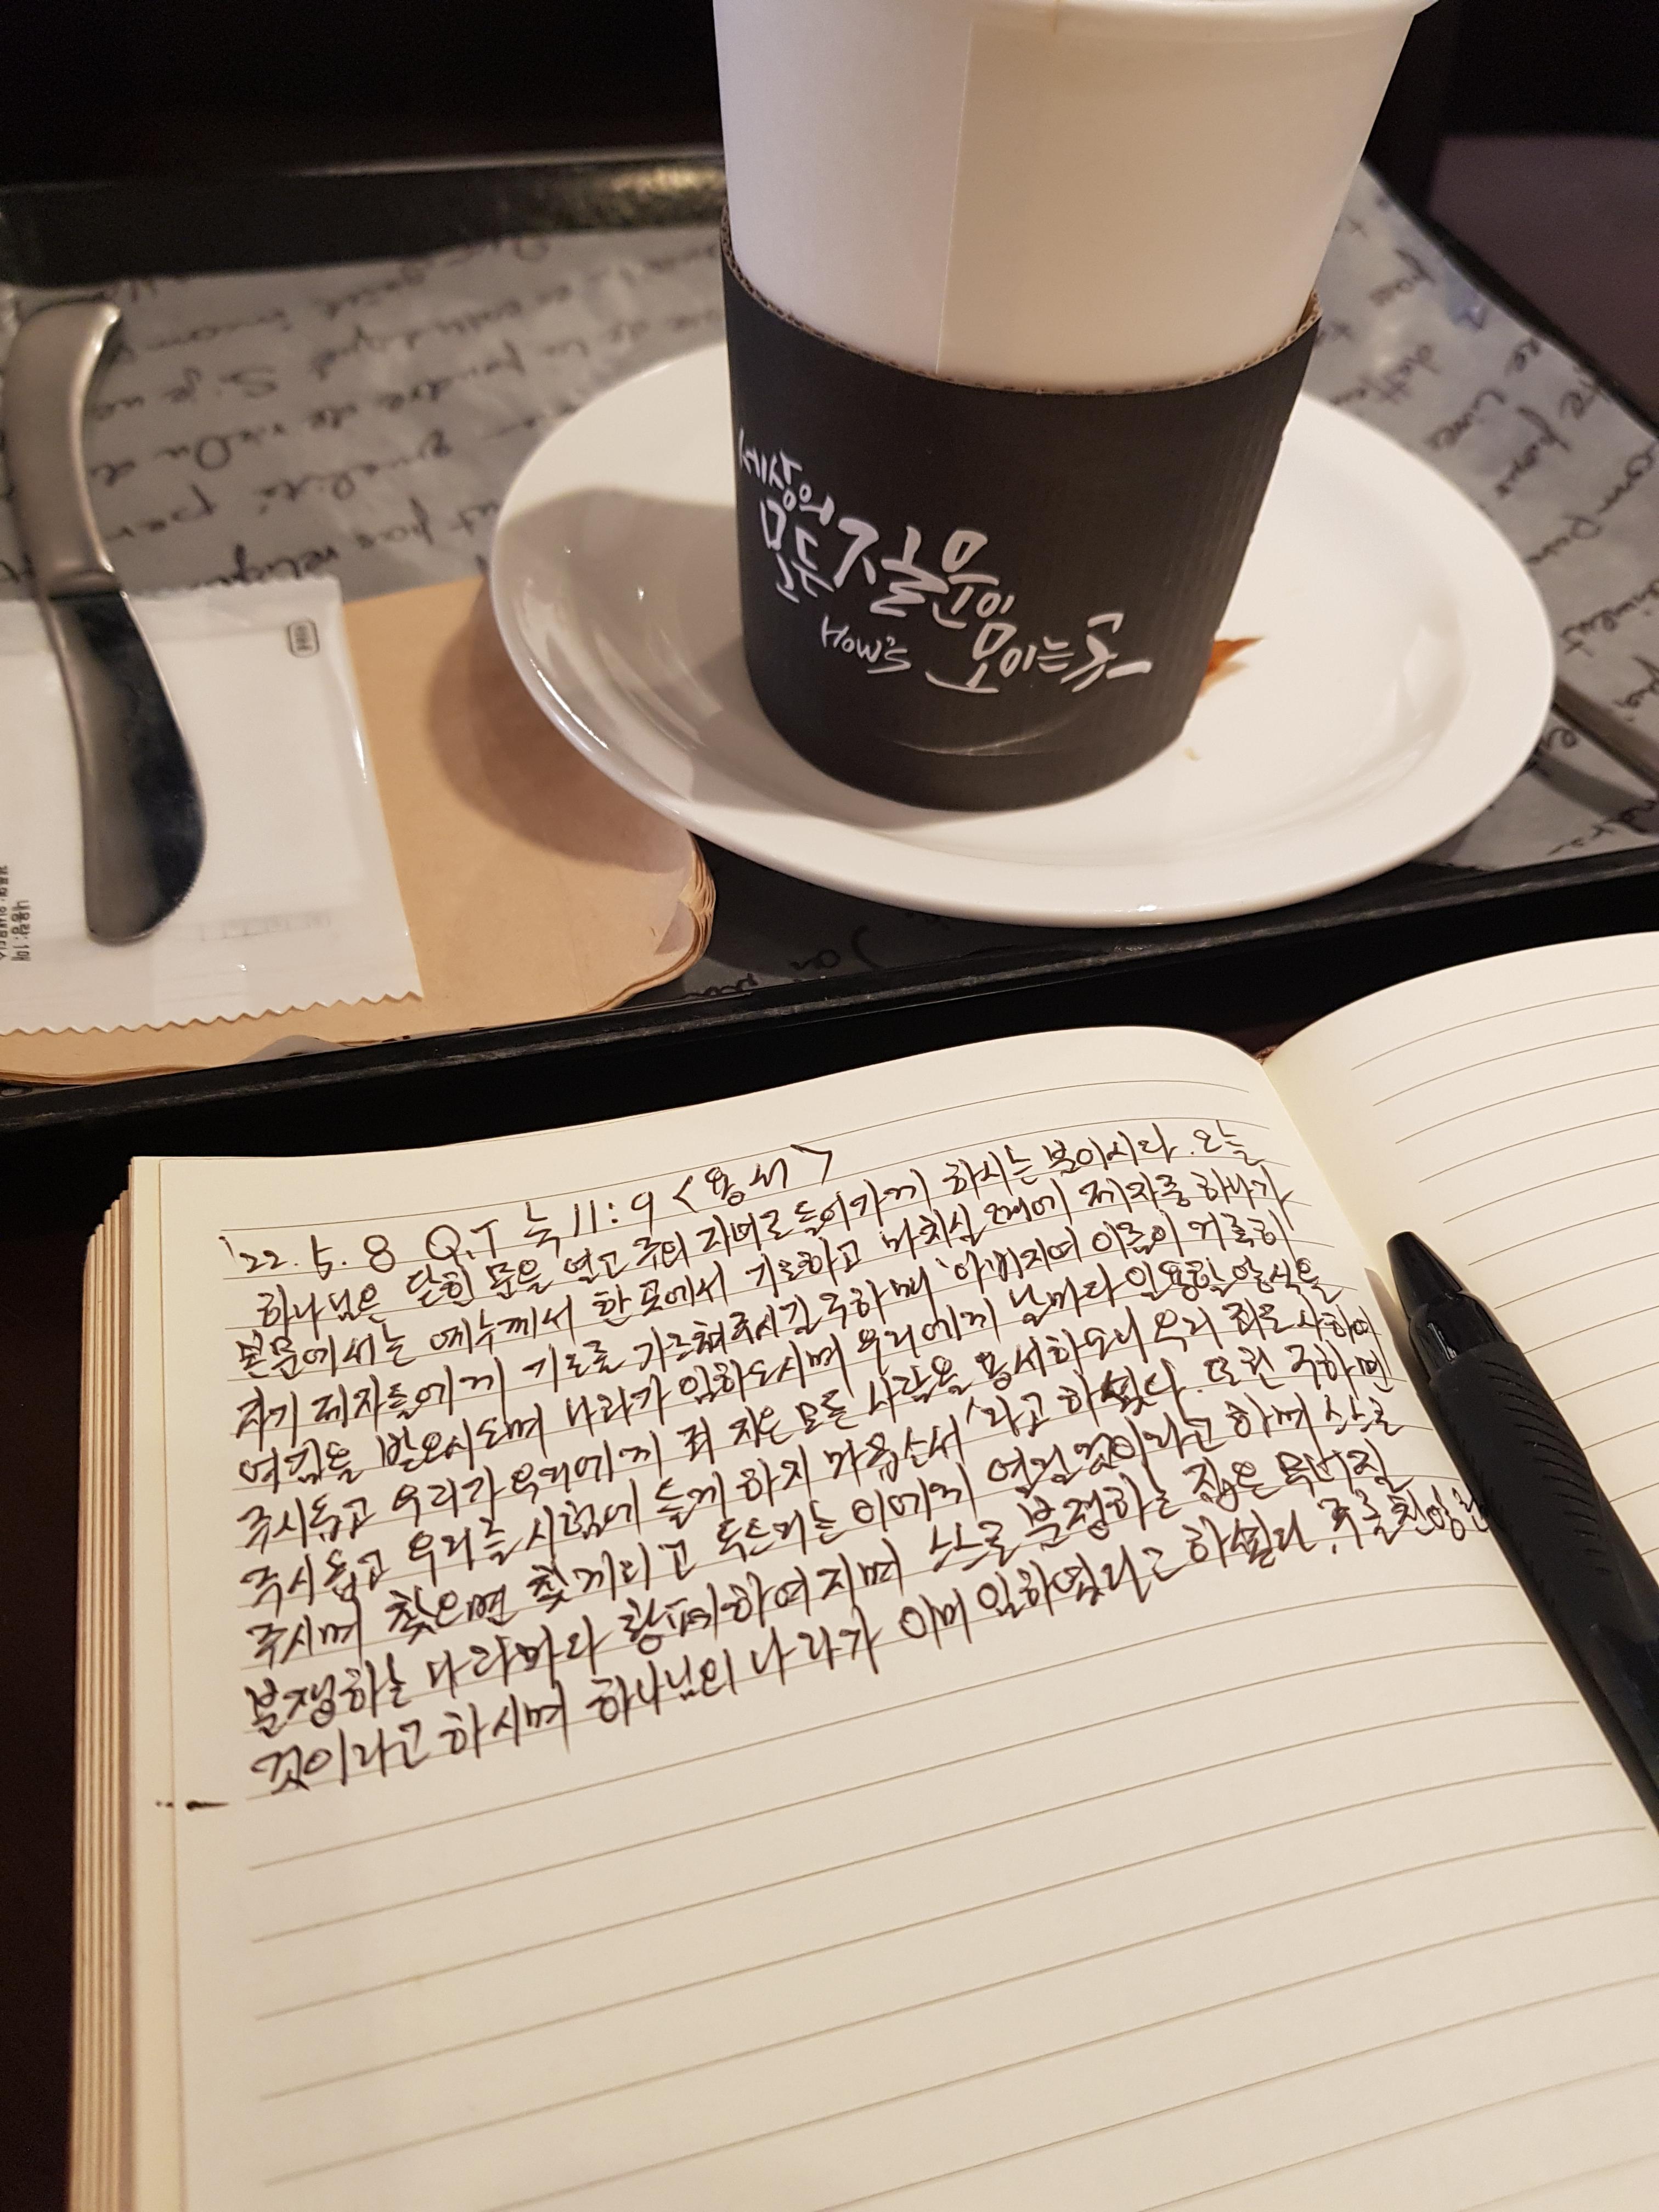 세상의
모든 질문이
How's 모이는 곳
'22. 5. 8 Q.T 눅 11:9 <용서>
하나님은 닫힌 문을 열고 주의 자녀로 들어가게 하시는 분이시다. 오늘
본문에서는 예수께서 한 곳에서 기도하고 마치실 때에 제자중 하나가
자기 제자들에게 기도를 가르쳐주시길 구하매 '아버지여 이름이 거룩히
여김을 받으시오며 나라가 임하오시며 우리에게 날마다 일용할 양식을
주시옵고 우리가 우리에게 죄 지은 모든 사람을 용서하오니 우리 죄도 사하여
주시옵고 우리를 시험에 들게 하지 마옵소서'라고 하셨다. 또한 구하면
주시며 찾으면 찾게되고 두드리는 이에게 열릴 것이라고 하며 스스로
분쟁하는 나라마다 황폐하여지며 스스로 분쟁하는 집은 무너질
것이라고 하시며 하나님의 나라가 이미 임하였다고 하셨다. 주를 찬양